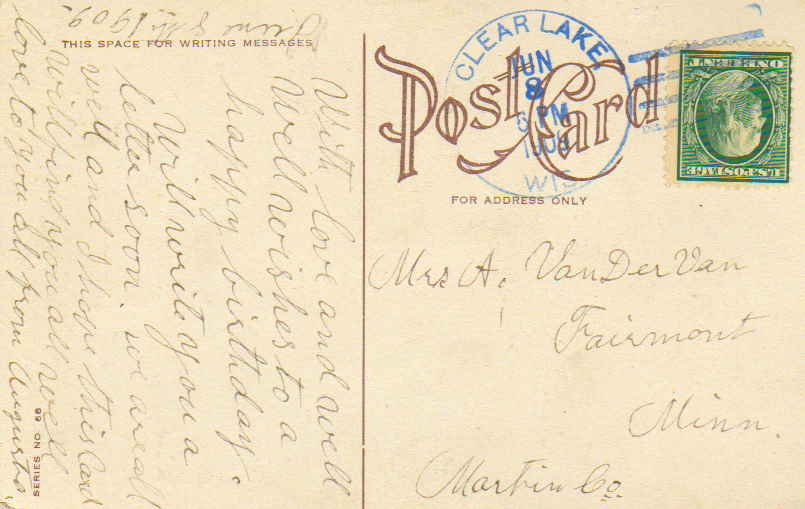 June 8th 1909.
THIS SPACE FOR WRITING MESSAGES
With love and well
Well wishes to a
happy birthday.
Will write you a
letter soon. we are all
well and I hope this Card
will find you all well
love to you all from Augusta.
SERIES NO 66
Post Card
FOR ADDRESS ONLY
CLEAR LAKE,
JUN
8
PM
1909
WIS
U.S. POSTAGE
ONE CENT
Mrs A. VanDerVan
Fairmont
Minn.
Martin Co.